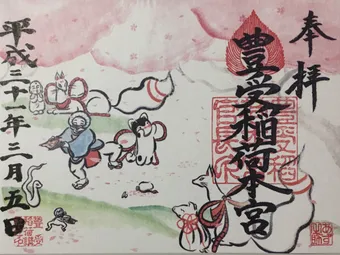 奉拝
豊受稲荷本宮
平成三十一年三月五日